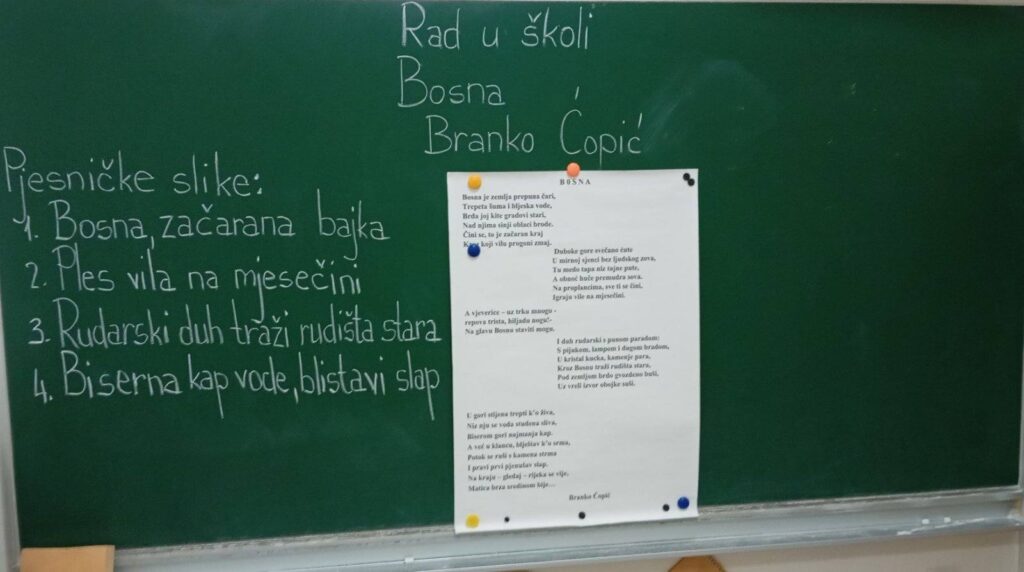 Rad u školi
Bosna
Branko Ćopić
Pjesničke slike:
1. Bosna, začarana bajka
2. Ples vila na mjesečini
3. Rudarski duh traži rudišta stara
4. Biserna kap vode, blistavi slap
BOSNA
Bosna je zemlja prepuna čari,
Trepeta šuma i bljeska vode,
Brda joj kite gradovi stari,
Nad njima sinji oblaci brode.
Čini se, to je začaran kraj
koji vilu progoni zmaj.
Duboke gore svečano ćute
U mirnoj sjenci bez ljudskog zova,
Tu medo tapa niz tajne pute,
A obnoć huče premudra sova.
Na proplancima, sve ti se čini,
Igraju vile na mjesečini.
A vjeverice – uz trku mnogu -
repova trista, hiljadu nogu!-
Na glavu Bosnu staviti mogu.
I duh rudarski s punom paradom:
S pijukom, lampom i dugom bradom,
U kristal kucka, kamenje para,
Kroz Bosnu traži rudišta stara,
Pod zemljom brdo gvozdeno buši,
Uz vreli izvor obojke suši.
U gori stijena trepti k'o živa,
Niz nju se voda studena sliva,
Biserom gori najmanja kap.
A već u klancu, blještav k'o srma,
Potok se ruši s kamena strma
I pravi prvi pjenušav slap.
Na kraju – gledaj – rijeka se vije,
Matica brza sredinom šije...
Branko Ćopić